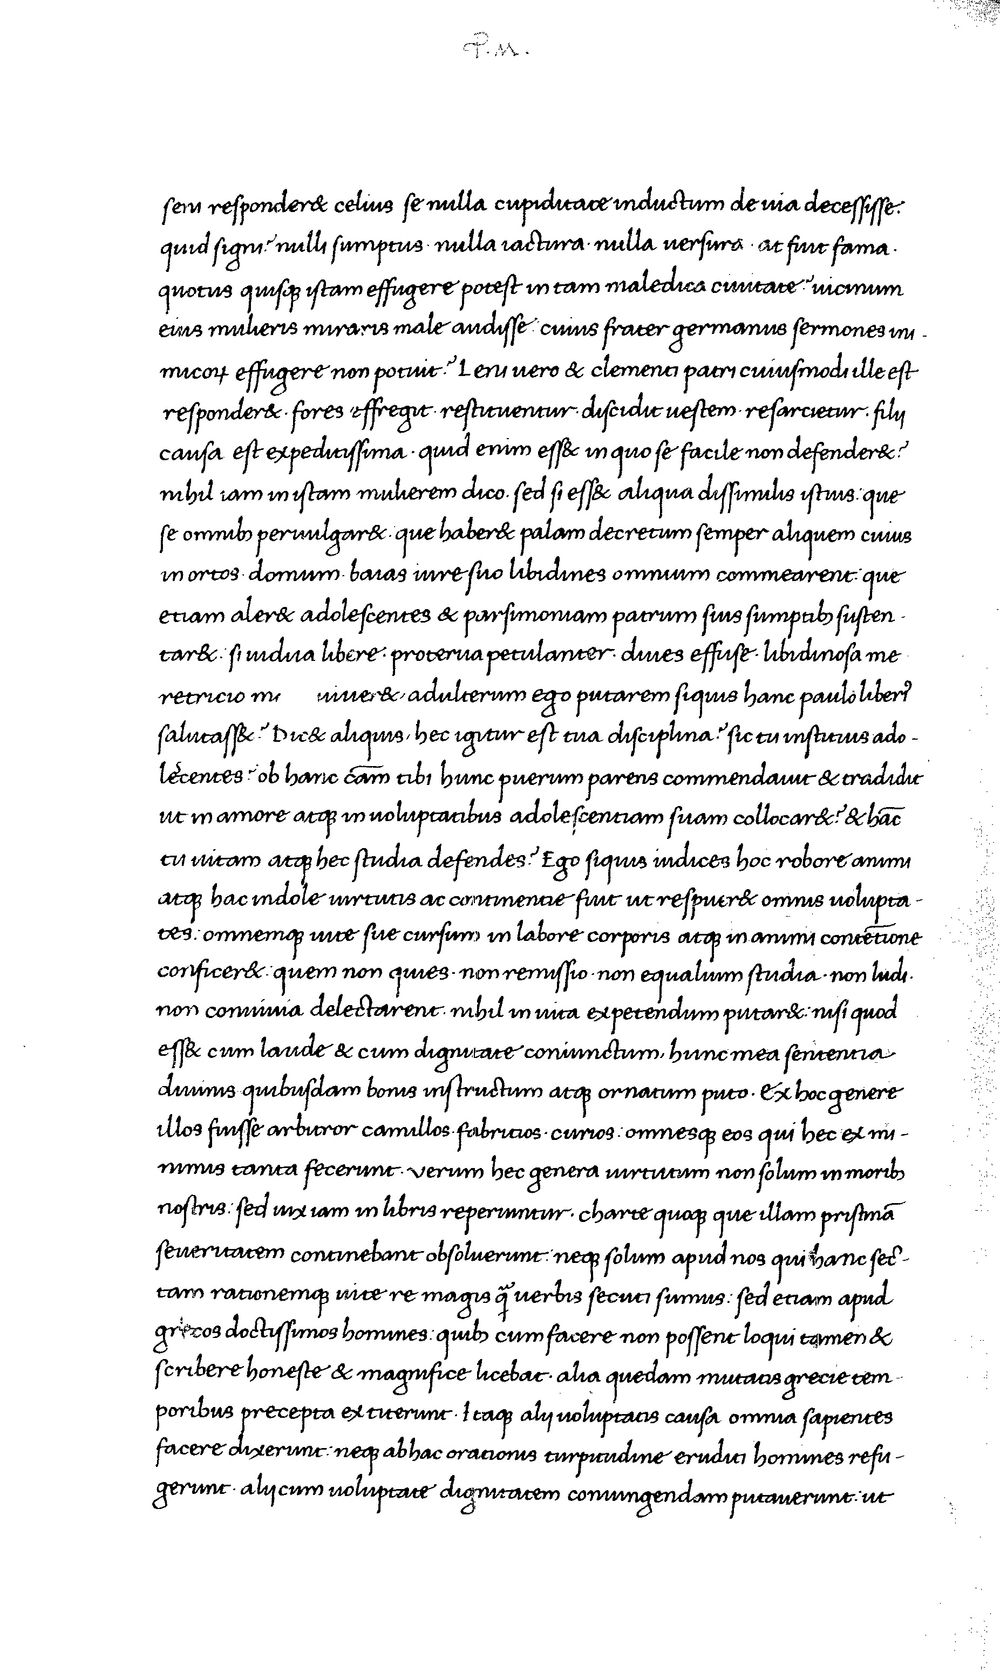 P. M.
seni responder& celius se nulla cupiditate inductum de uia decessisse:
quid signi? nulli sumptus · nulla iactura · nulla uersura · at fuit fama ·
quotus quisq; istam effugere potest in tam maledica ciuitate? uicinum
eius mulieris miraris male audisse: cuius frater germanus sermones ini-
micoꝝ effugere non potuit? Leni uero & clementi patri cuiusmodi ille est
responder& · fores effregit · restituentur · discidit uestem · resarcietur · filij
causa est expeditissima · quid enim ess& in quo se facile non defender&?
nihil iam in istam mulierem dico · sed si ess& aliqua dissimilis istius: que
se omnib; peruulgar& · que haber& palam decretum semper aliquem cuius
in ortos · domum · baias iure suo libidines omnium commearent: que
etiam aler& adolescentes & parsimoniam patrum suis sumptib; susten-
tar&: si uidua libere · proterua petulanter · diues effuse · libidinosa me
retricio mi uiuer& · adulterum ego putarem siquis hanc paulo liberi᷑
salutass&? Dic& aliquis, hec igitur est tua disciplina? sic tu instituis ado-
lecentes? ob hanc cãm tibi hunc puerum parens commendauit & tradidit
ut in amore atq; in uoluptatibus adolescentiam suam collocar&? & hãc
tu uitam atq; hec studia defendes? Ego siquis iudices hoc robore animi
atq; hac indole uirtutis ac continentie fuit ut respuer& omnis uolupta-
tes: omnemq; uite sue cursum in labore corporis atq; in animi contẽtione
conficer&: quem non quies · non remissio · non equalium studia · non ludi ·
non conuiuia delectarent · nihil in uita expetendum putar&: nisi quod
ess& cum laude & cum dignitate coniunctum, hunc mea sententia
diuinis quibusdam bonis instructum atq; ornatum puto · Ex hoc genere
illos fuisse arbitror camillos · fabritios · curios: omnesq; eos qui hec ex mi-
nimis tanta fecerunt · Verum hec genera uirtutum non solum in morib;
nostris: sed uix iam in libris reperiuntur · charte quoq; que illam pristinã
seueritatem continebant obsoluerunt: neq; solum apud nos qui hanc sec-
tam rationemq; uite re magis q̃ uerbis secuti sumus: sed etiam apud
grecos doctissimos homines: quib; cum facere non possent loqui tamen &
scribere honeste & magnifice licebat · alia quedam mutatis grecie tem-
poribus precepta extiterunt · Itaq; alij uoluptatis causa omnia sapientes
facere dixerunt: neq; ab hac orationis turpitudine eruditi homines refu-
gerunt · alij cum uoluptate dignitatem coniungendam putauerunt: ut